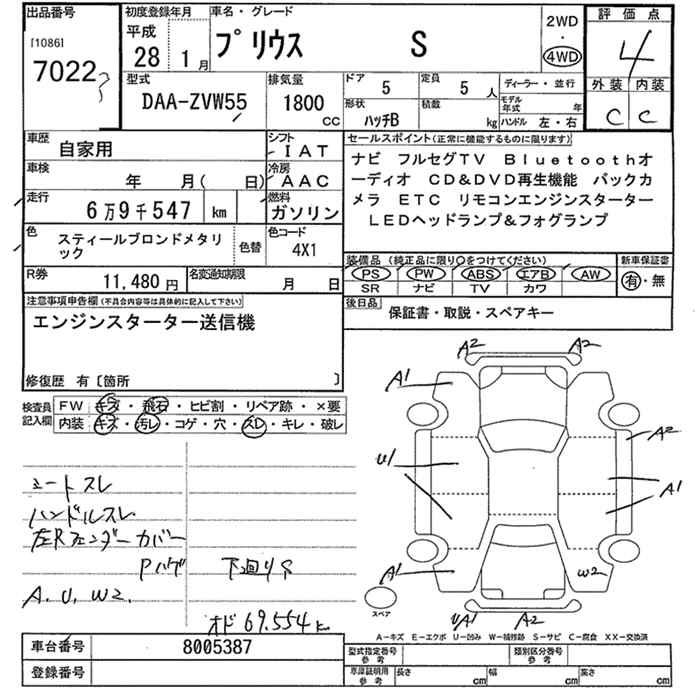 出品番号
[1086]
7022
初度登録年月
平成
28 1月
車名・グレード
プリウス S
2WD
・
4WD
評価点
4
外装 内装
C C
型式
DAA-ZVW55
排気量
1800
CC
ドア
5
定員
5人
ディーラー・並行
形状
ハッチB
積数
kg
モデル年式 年
ハンドル 左・右
車歴
自家用
シフト
IAT
車検
年 月( 日)
冷房
AAC
走行
6万9千547 km
燃料
ガソリン
色
スティールブロンドメタリック
色替
色コード
4X1
R券
11,480円
名変通知期限
月 日
セールスポイント(正常に機能するものに限ります)
ナビ フルセグTV Bluetoothオ
ーディオ CD&DVD再生機能 バックカ
メラ ETC リモコンエンジンスターター
LEDヘッドランプ&フォグランプ
装備品(純正品に限り○をつけてください)
PS PW ABS エアB AW
SR ナビ TV カワ
新車保証書
有・無
後日品
保証書・取説・スペアキー
注意事項申告欄(不具合内容等は具体的に記入して下さい)
エンジンスターター送信機
修復歴 有〔箇所 〕
検査員記入欄
FW キズ・飛石・ヒビ割・リペア跡・×要
内装 キズ・汚レ・コゲ・穴・スレ・キレ・破レ
シートスレ
ハンドルスレ
左Rフェンダーカバー
Pハゲ
下回りサ
A.U.W2.
オド 69.554k
A2 A2
A1
A2
U1
A1
A1
W2
UA1 A2
スペア
A-キズ E-エクボ U-凹み W-補修跡 S-サビ C-腐食 XX-交換済
車台番号
8005387
登録番号
型式指定番号
参考
類別区分番号
参考
車庫証明用
参考
長さ cm
幅 cm
高さ cm